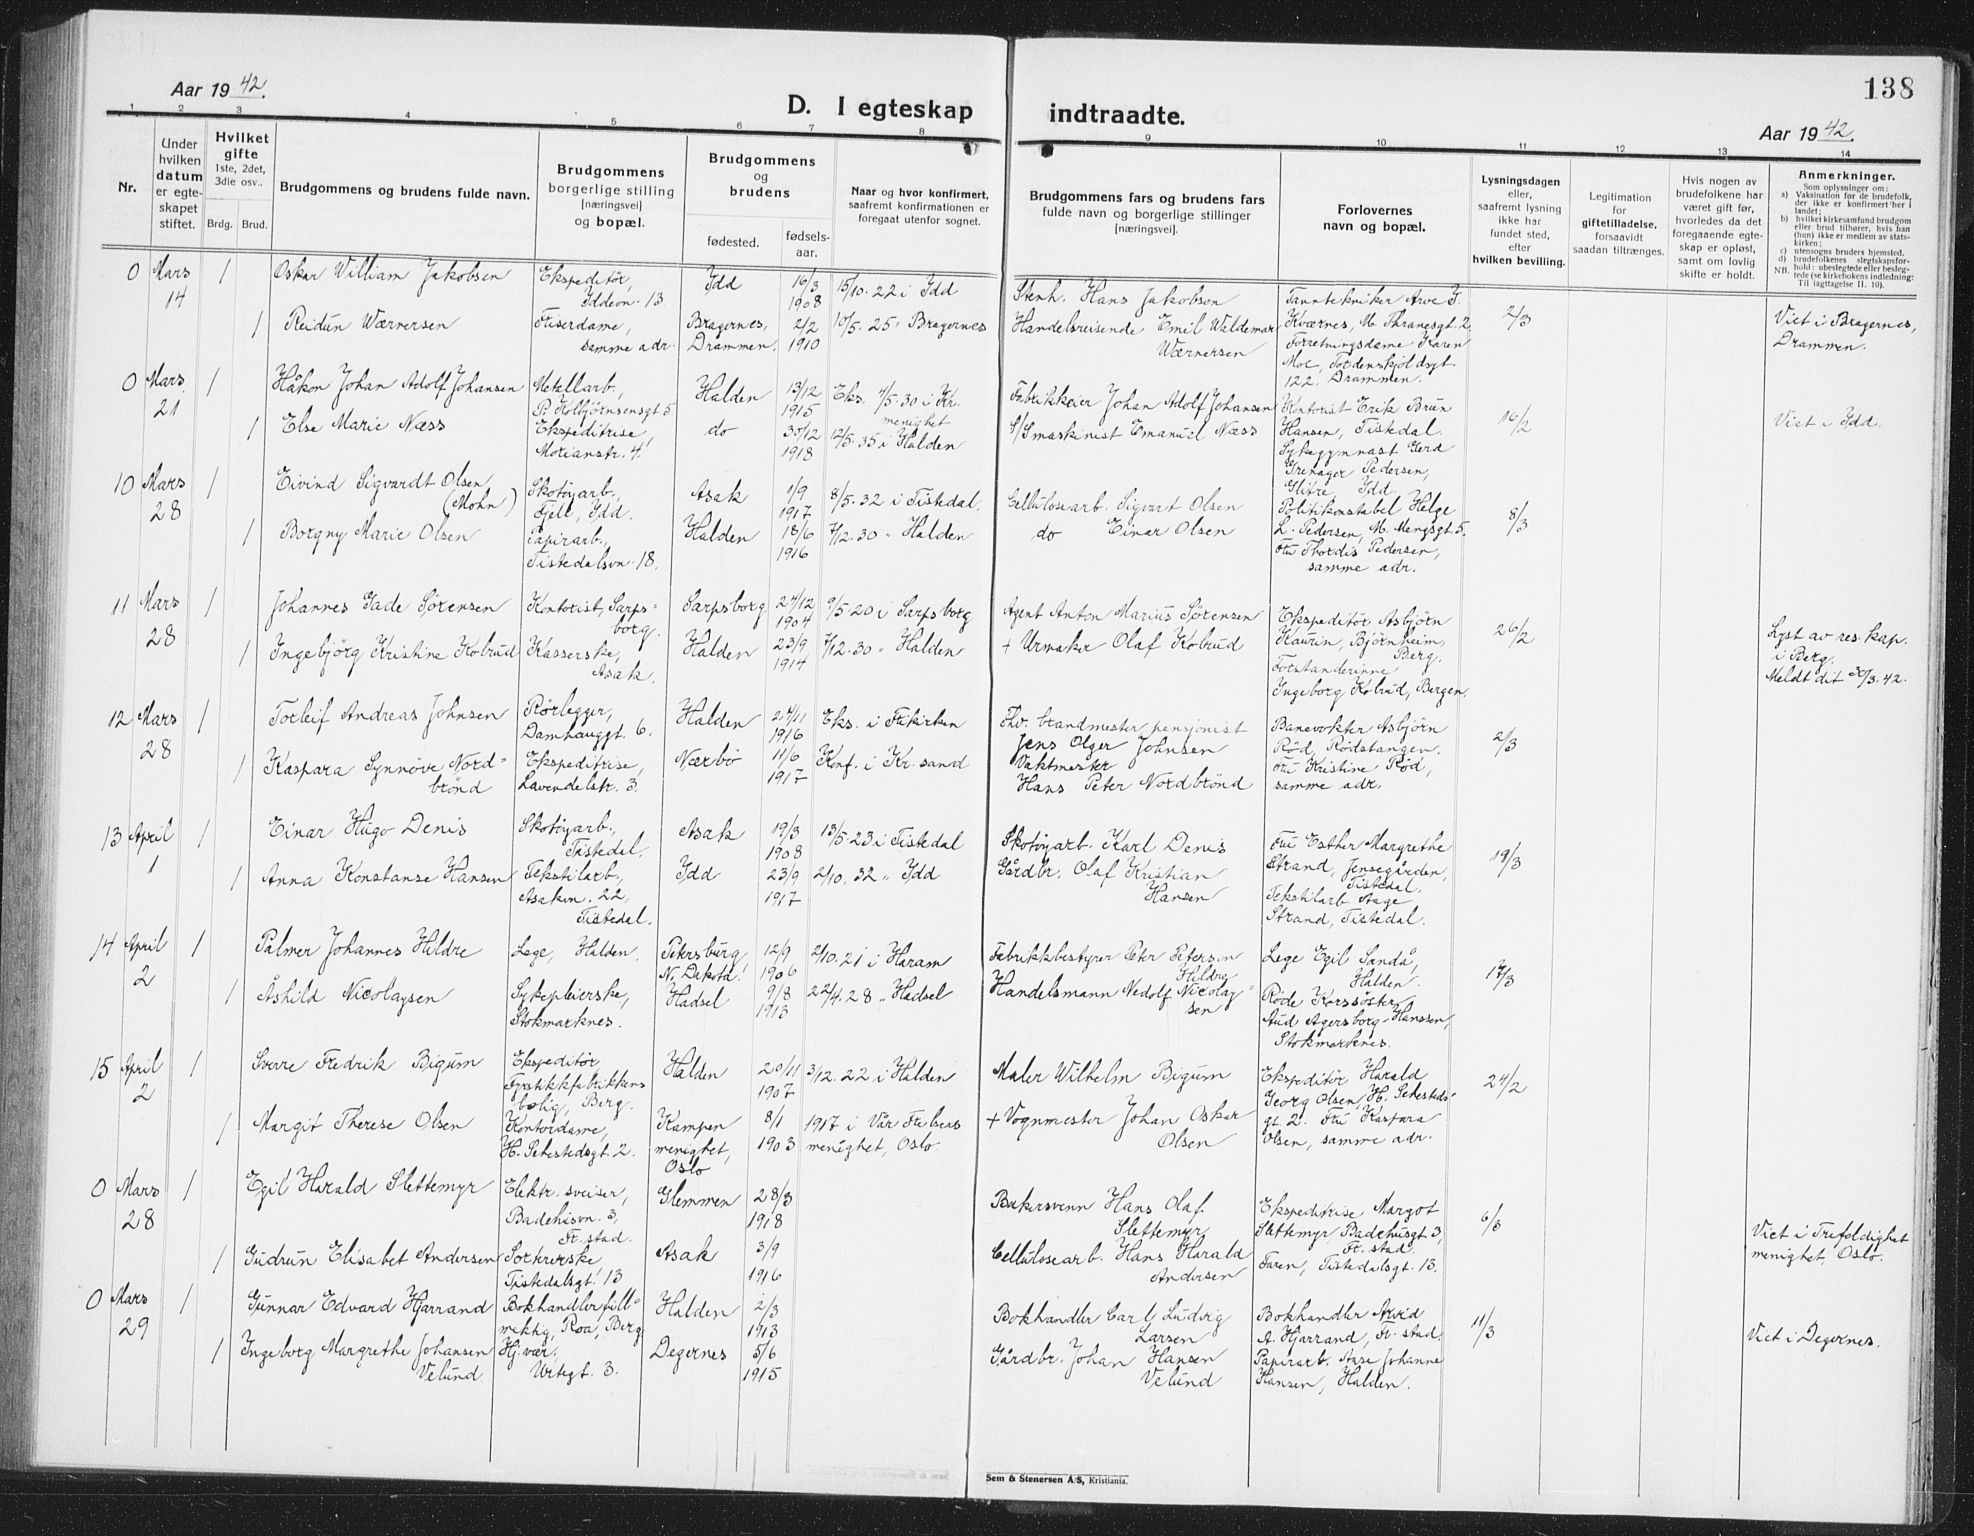 Aar 1942.
D. I egteskap indtraadte.
138
Aar 1942.
1 2 3 4 5 6 7 8 9 10 11 12 13 14
Nr.
Under hvilken datum er egteskapet stiftet.
Hvilket gifte
1ste, 2det, 3die osv..
Brdg. Brud.
Brudgommens og brudens fulde navn.
Brudgommens borgerlige stilling [næringsvei] og bopæl.
Brudgommens og brudens
fødested. fødselsaar.
Naar og hvor konfirmert, saafremt konfirmationen er foregaat utenfor sognet.
Brudgommens fars og brudens fars fulde navn og borgerlige stillinger [næringsvei].
Forlovernes navn og bopæl.
Lysningsdagen eller, saafremt lysning ikke har fundet sted, efter hvilken bevilling.
Legitimation for giftetilladelse, forsaavidt saadan tiltrænges.
Hvis nogen av brudefolkene har været gift før, hvorledes da det foregaaende egteskap er opløst, samt om lovlig skifte er holdt.
Anmerkninger.
Som oplysninger om:
a) Vaksination for de brudefolk, der ikke er konfirmert her i landet;
b) hvilket kirkesamfund brudgom eller brud tilhører, hvis han (hun) ikke er medlem av statskirken;
c) utensogns bruders hjemsted.
d) brudefolkenes slegtskapsforhold: ubeslegtede eller beslegtede (se kirkebokens indledning:
NB. Til iagttagelse II. 10).
0 Mars 14 1 Oskar William Jakobsen Ekspeditör, Iddevn. 13 Idd 16/3 1908 15/10. 22 i Idd Stenh. Hans Jakobsen Tanntekniker Arve J. Kværnes, M. Thranesgt. 2 2/3 Viet i Bragernes, Drammen.
1 Reidun Wærnersen Friserdame, samme adr. Bragernes, Drammen. 2/2 1910 10/5. 25 " Bragernes Handelsreisende Emil Waldemar Wærnersen Forretningsdame Karen Moe, Tordenskjoldsgt. 122, Drammen.
0 Mars 21 1 Håkon Johan Adolf Johansen Metallarb., P. Kolbjörnsensgt 5 Halden 13/12 1915 Eks. 4/5. 30 i Kr. menighet Fabrikkeier Johan Adolf Johansen Kontorist Erik Brun Hansen, Tistedal. 16/2 Viet i Idd.
1 Else Marie Næss Ekspeditrise, Motianstr. 4. do 30/12 1918 12/5. 35 i Halden S/S maskinist Emanuel Næss Sykegymnast Gerd Grenager Pedersen, Glitre, Idd.
10 Mars 28 1 Eivind Sigvardt Olsen (Mohn) Skotöyarb., Fjell, Idd. Asak 1/9 1917 8/5. 32 i Tistedal. Cellulosearb. Sigvart Olsen Politikonstabel Helge L. Pedersen, M. Mengsgt 5. 8/3
1 Borgny Marie Olsen Papirarb., Tistedalsvn. 18. Halden 18/6 1916 7/12. 30 " Halden do Einar Olsen Fru Thordis Pedersen, samme adr.
11 Mars 28 1 Johannes Gade Sörensen Kontorist, Sarpsborg. Sarpsborg 24/12 1904 9/5. 20 i Sarpsborg Agent Anton Marius Sörensen Ekspeditör Asbjörn Kaurin, Björnheim, Berg. 26/2 Lyst av res. kap. i Berg. Meldt dit 30/3. 42.
1 Ingebjörg Kristine Kolrud Kasserske, Asak. Halden 23/9 1914 7/12. 30 " Halden + Urmaker Olaf Kolrud Forstanderinne Ingeborg Kolrud, Bergen.
12 Mars 28 1 Torleif Andreas Johnsen Rörlegger, Damhauggt. 6. Halden 24/11 1916 Eks. i Frikirken Fhv. brandmester pensjonist Jens Olger Johnsen Banevokter Asbjörn Röd, Rödstangen. 2/3
1 Kaspara Synnöve Nordbrönd Ekspeditrise, Lavendelstr. 3. Nærbö 11/6 1917 Knf. i Kr. sand Vaktmester Hans Peter Nordbrönd Fru Kristine Röd, samme adr.
13 April 1 1 Einar Hugo Denis Skotöyarb., Tistedal. Asak 19/3 1908 13/5. 23 i Tistedal Skotöyarb. Karl Denis Fru Esther Margrethe Strand, Jensegården, Tistedal. 19/3
1 Anna Konstanse Hansen Tekstilarb., Asakvn. 22, Tistedal. Idd 23/9 1917 2/10. 32 " Idd Gårdbr. Olaf Kristian Hansen Tekstilarb. Aage Strand, Tistedal.
14 April 2 1 Palmer Johannes Hildre Lege, Halden. Petersburg, N. Dakota. 12/9 1906 2/10. 21 i Haram Fabrikkbestyrer Peter Petersen Hildre Lege Egil Sandå, Halden. 17/3
1 Åshild Nicolaysen Sykepleierske, Stokmarknes. Hadsel 9/8 1913 22/4. 28 " Hadsel Handelsmann Nedolf Nicolaysen Röde Korssöster Aud Agersborg-Hanssen, Stokmarknes.
15 April 2 1 Sverre Fredrik Bigum Ekspeditör Fyrstikkfabrikkens bolig, Berg. Halden 20/11 1907 3/12. 22 i Halden Maler Wilhelm Bigum Ekspeditör Harald Georg Olsen, H. Sehestedsgt 2. 24/2
1 Margit Therese Olsen Kontordame, H. Sehestedsgt. 2. Kampen menighet, Oslo 8/1 1903 1917 i Vår Frelsers menighet, Oslo. + Vognmester Johan Oskar Olsen Fru Kaspara Olsen, samme adr.
0 Mars 28 1 Egil Harald Slettemyr Elektr. sveiser, Badehusvn. 3, Fr. stad. Glemmen 28/3 1918 Bakersvenn Hans Olaf Slettemyr Ekspeditrise Margot Slettemyr Badehusgt 3, Fr. stad. 6/3 Viet i Trefoldighet menighet, Oslo.
1 Gudrun Elisabet Andersen Sorterske, Tistedalsgt. 13 Asak 3/9 1916 Cellulosearb. Hans Harald Andersen Faren, Tistedalsgt. 13.
0 Mars 29 1 Gunnar Edvard Hjarrand Bokhandlerfullmektig, Roa, Berg Halden 2/3 1913 Bokhandler Carl Ludvig Larsen Bokhandler Arvid A. Hjarrand, Fr. stad. 11/3 Viet i Degernes.
1 Ingeborg Margrethe Johansen Velund Hj.vær. Urtegt. 3. Degernes 5/6 1915 Gårdbr. Johan Hansen Velund Papirarb. Aase Johanne Hansen, Halden.
Sem & Stenersen A/S, Kristiania.